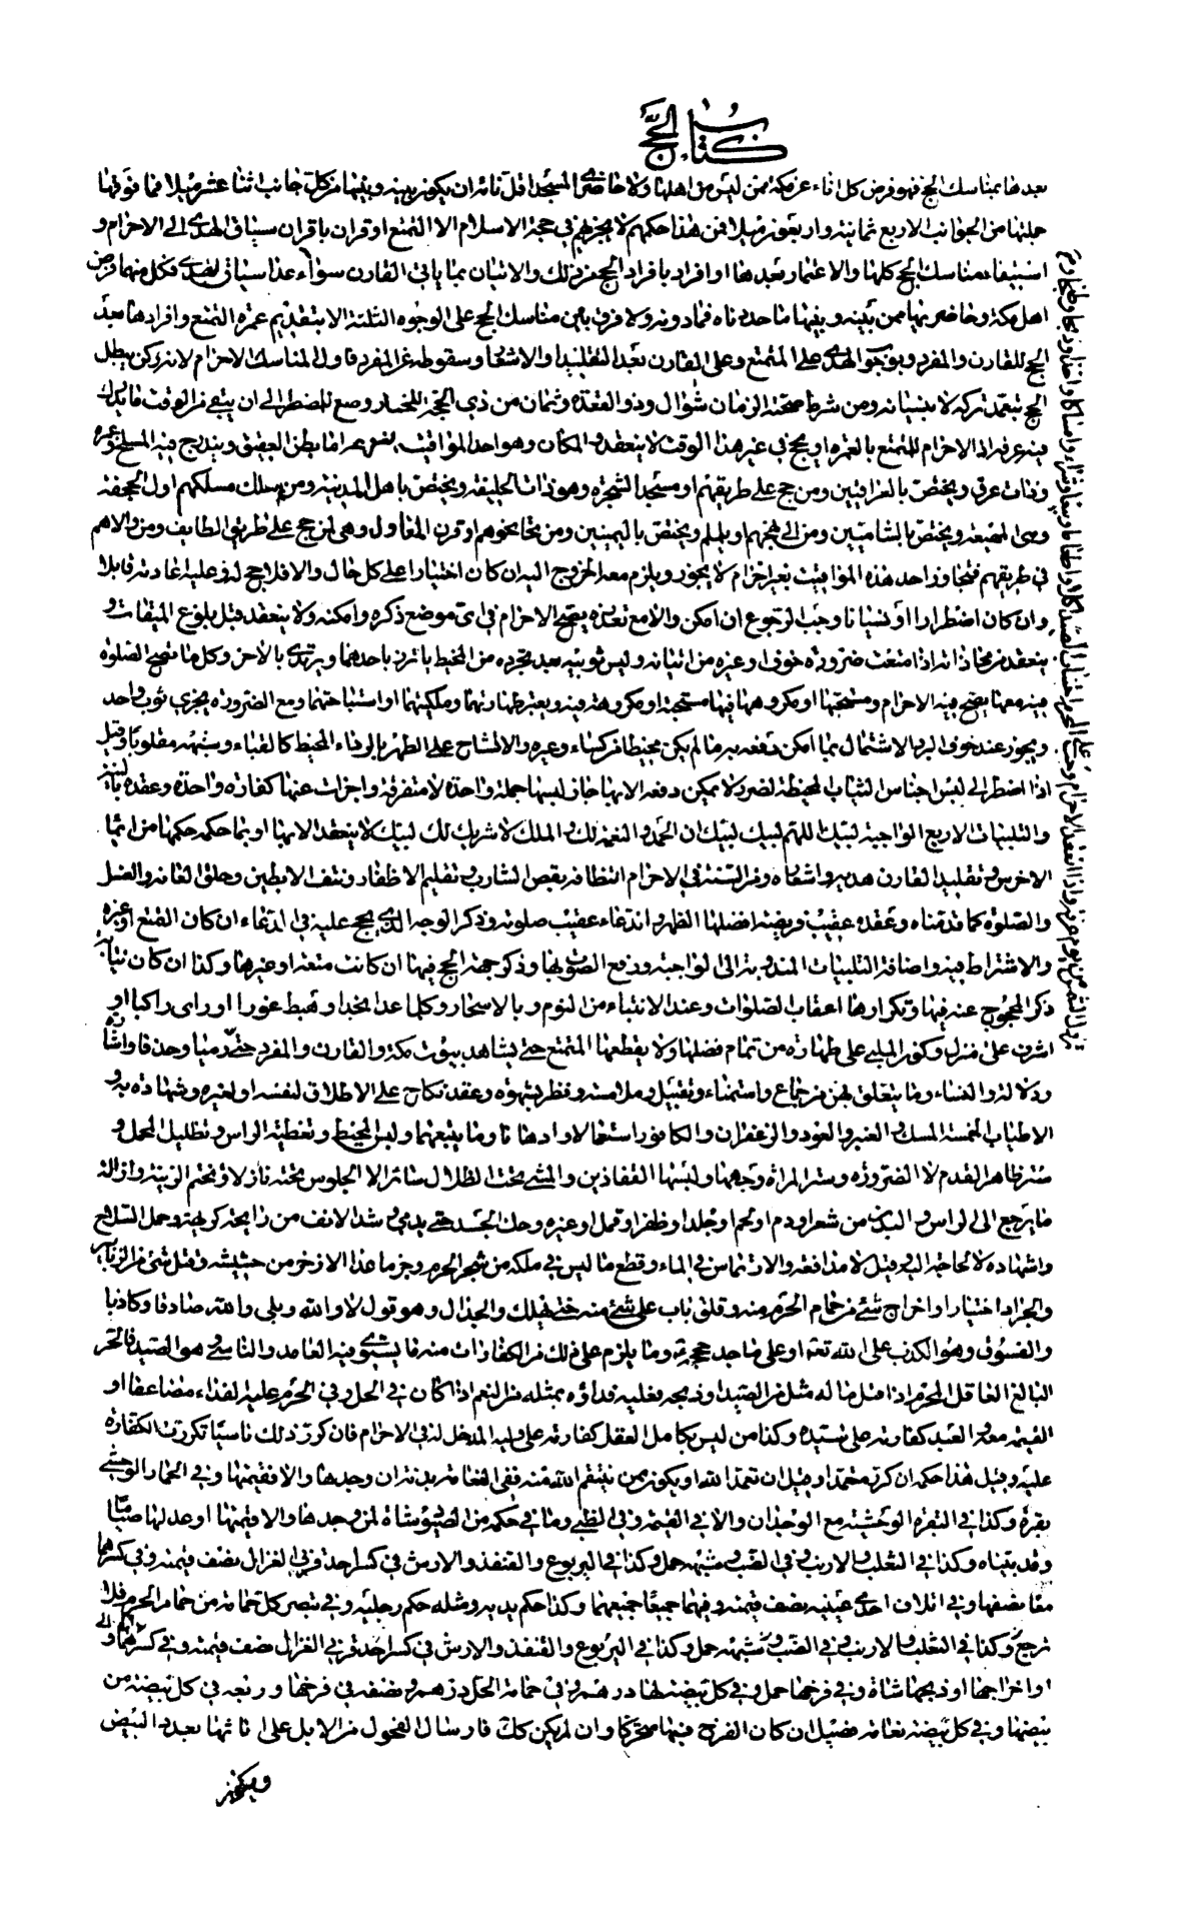 كتاب الحج
بعدها بمناسك الحج فهو فرض كل ناء عن مكة ممن ليس من اهلها ولا حاضري المسجد اقل نائه ان يكون بينه وبينها من كل جانب اثنا عشر ميلا فما فوقها
جملتها من الجوانب الاربع ثمانية واربعون ميلا فمن هذا حكمهم لا يجزيهم في حجة الاسلام الا التمتع او قران باقران سياق الهدي الى الاحرام و
استيفاء مناسك الحج كلها والاعتمار بعدها او افراد بافراد الحج من ذلك والاتيان بما ياتي القارن سواء عدا سياق الهدي فكل منهما فرض
اهل مكة وحاضريها ممن بينه وبينها ما حددناه فما دونه ولا فرق بين مناسك الحج على الوجوه الثلثة الا بتقديم عمرة التمتع وافرادها بعد
الحج للقارن والمفرد وبوجوب الهدي على المتمتع وعلى القارن بعد التقليد او الاشعار وسقوطه عن المفرد فاول المناسك الاحرام لانه ركن يبطل
الحج بتعمد تركه لا بنسيانه ومن شرط صحته الزمان شوال وذو القعدة وثمان من ذي الحجة للمختار وتسع للمضطر الى ان يبقى من الوقت ما يدرك
فيه عرفة اذ الاحرام للتمتع بالعمرة او بحج في غير هذا الوقت لا ينعقد والمكان وهو احد المواقيت اما بطن العقيق ويندرج فيه المسلخ وغمرة
وذات عرق ويختص بالعراقيين ومن حج على طريقهم او مسجد الشجرة وهو ذات الحليفة ويختص باهل المدينة ومن سلك مسلكهم او الجحفة
وهي المهيعة ويختص بالشاميين ومن الى نهجهم او يلملم ويختص باليمنيين ومن نحا نحوهم او قرن المنازل وهي لمن حج على طريق الطايف ومن والاهم
في طريقهم فتجاوز احد هذه المواقيت بغير احرام لا يجوز ويلزم معه الخروج اليه ان كان اختيارا على كل حال والا فلا حج له وعليه اعادته قابلا
وان كان اضطرارا او نسيانا وجب الرجوع ان امكن والا مع تعذره يصح الاحرام في اي موضع ذكره وامكنه ولا ينعقد قبل بلوغ الميقات و
ينعقد من محاذاته اذا منعت ضرورة خوف او غيره من اتيانه ولبس ثوبيه بعد تجرده من المخيط ياتزر باحدهما ويرتدي بالاخر وكل ما تصح الصلوة
فيه معها يصح فيه الاحرام ومستحبها او مكروهها فيها مستحبة او مكروهة فيه ويعتبر طهارتهما وملكيتهما او استباحتهما ومع الضرورة يجزي ثوب واحد
ويجوز عند خوف البرد الاشتمال بما امكن دفعه به ما لم يكن مخيطا من كساء وغيره والاتشاح على الظهر بالرداء المخيط كالقباء وشبهه مقلوبا وقيل
اذا اضطر الى لبس اجناس الثياب المخيطة لضرر لا يمكن دفعه الا بها جاز لبسها جملة واحدة لا متفرقة واجزات عنها كفارة واحدة وعقده بالنية
والتلبيات الاربع الواجبة لبيك اللهم لبيك لبيك ان الحمد والنعمة لك والملك لا شريك لك لبيك لا ينعقد الا بها او بما حكمه حكمها من ايماء
الاخرس وتقليد القارن هديه واشعاره ومن السنة في الاحرام النظافة بقص الشارب وتقليم الاظفار ونتف الابطين وحلق العانة والغسل
والصلوة كما قدمناه وعقده عقيب فريضة افضلها الظهر والدعاء عقيب صلوته وذكر الوجه الذي يحج عليه في الدعاء ان كان التمتع او غيره
والاشتراط فيه واضافة التلبيات المندوبة الى الواجبة ورفع الصوت بها وذكر جهة الحج فيها ان كانت متعة او غيرها وكذا ان كان نيابة
ذكر المحجوج عنه فيها وتكرارها اعقاب الصلوات وعند الانتباه من النوم وبالاسحار وكلما علا نجدا وهبط غورا او راى راكبا او
اشرف على منزل وكون الملبي على طهارة من تمام فضلها ولا يقطعها المتمتع حتى يشاهد بيوت مكة والقارن والمفرد حتى
ودلالة والنساء وما يتعلق بهن من جماع واستمناء وتقبيل وملامسة ونظر بشهوة وعقد نكاح على الاطلاق لنفسه او لغيره وشهادة به و
الاطياب الخمسة المسك والعنبر والعود والزعفران والكافور استعمالا وادهانا وما يتبعهما ولبس المخيط وتغطية الراس وتظليل المحمل و
ستر ظاهر القدم الا لضرورة وستر المراة وجهها ولبسها القفازين والمشي تحت الظلال سائرا لا الجلوس تحته نازلا وتختم الزينة وازالة
ما يرجع الى الراس والبدن من شعر او دم او لحم او جلد او ظفر او قمل او غيره وحك الجسد حتى يدمي وشد الانف من رايحة كريهة وحمل السلاح
واشهاره لا لحاجة اليه وقيل لا مدافعة والارتماس في الماء وقطع ما ليس في ملكه من شجر الحرم وجز ما عدا الاذخر من حشيشه وقتل شيء من الزنابير
والجراد اختيارا واخراج شيء من حمام الحرم منه وغلق باب على شيء منه حتى يهلك والجدال وهو قول لا والله وبلى والله صادقا وكاذبا
والفسوق وهو الكذب على الله تعه او على احد حججه وما يلزم على ذلك من الكفارات منه ما يستوي فيه العامد والناسي وهو الصيد فالحر
البالغ العاقل المحرم اذا قتل ما له مثل من الصيد او ذبحه فعليه فداؤه بمثله من النعم اذا كان في الحل وفي الحرم عليه الفداء مضاعفا او
القيمة معه والعبد كفارته على سيده وكذا من ليس بكامل العقل كفارته على وليه المدخل له في الاحرام فان كرر ذلك ناسيا تكررت الكفارة
عليه وقيل هذا حكمه ان كرره متعمدا وقيل ان تعمد اولا يكون ممن ينتقم الله منه ففي النعامة بدنة ان وجدها والا فقيمتها وفي الحمار الوحشي
بقرة وكذا في البقرة الوحشية مع الوجدان والا في القيمة وفي الظبي وما في حكمه من الصيود شاة لمن وجدها والا قيمتها او عدلها صياما
وقد بيناه وكذا في الثعلب والارنب وفي الضب وشبهه حمل وكذا في اليربوع والقنفذ والارش في كسر احد قرني الغزال نصف قيمته وفي كسرهما
معا نصفها وفي اتلاف احدى عينيه نصف قيمته وفيهما جميعا جميعها وكذا حكم يديه ومثله حكم رجليه وفي تنفير كل حمامة من حمام الحرم فلا
ترجع وكذا في الثعلب والارنب وفي الضب وشبهه حمل وكذا في اليربوع والقنفذ والارش في كسر احد قرني الغزال نصف قيمته وفي كسرهما
او اخراجها او ذبحها شاة وفي فرخها حمل وفي كل بيضة لها درهم وفي حمامة الحل درهم ونصفه في فرخها وربعه في كل بيضة من
بيضها وفي كل بيضة نعامة فصيل ان كان الفرخ فيها متحركا وان لم يكن كك فارسال الفحول من الابل على اناثها بعدد البيض
ويكون